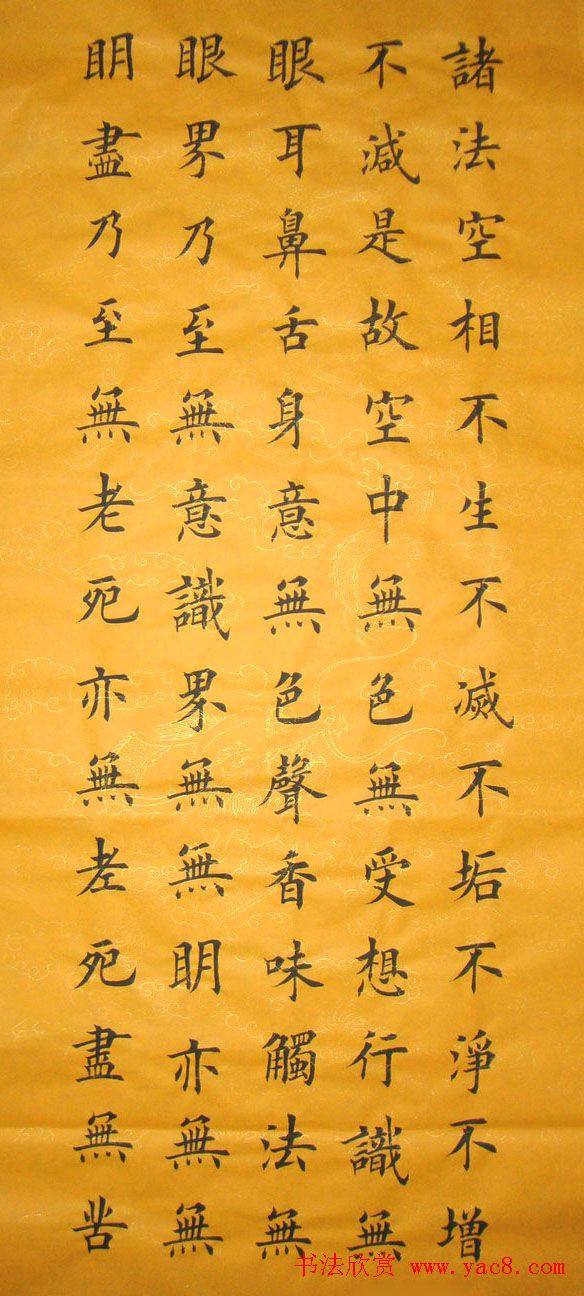 諸法空相不生不滅不垢不淨不增
不減是故空中無色無受想行識無
眼耳鼻舌身意無色聲香味觸法無
眼界乃至無意識界無無眀亦無無
眀盡乃至無老死亦無老死盡無苦
书法欣赏 www.yac8.com